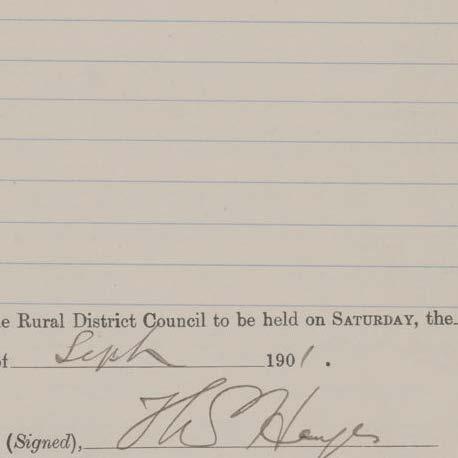 Rural District Council to be held on SATURDAY, the
Sept 1901.
(Signed),